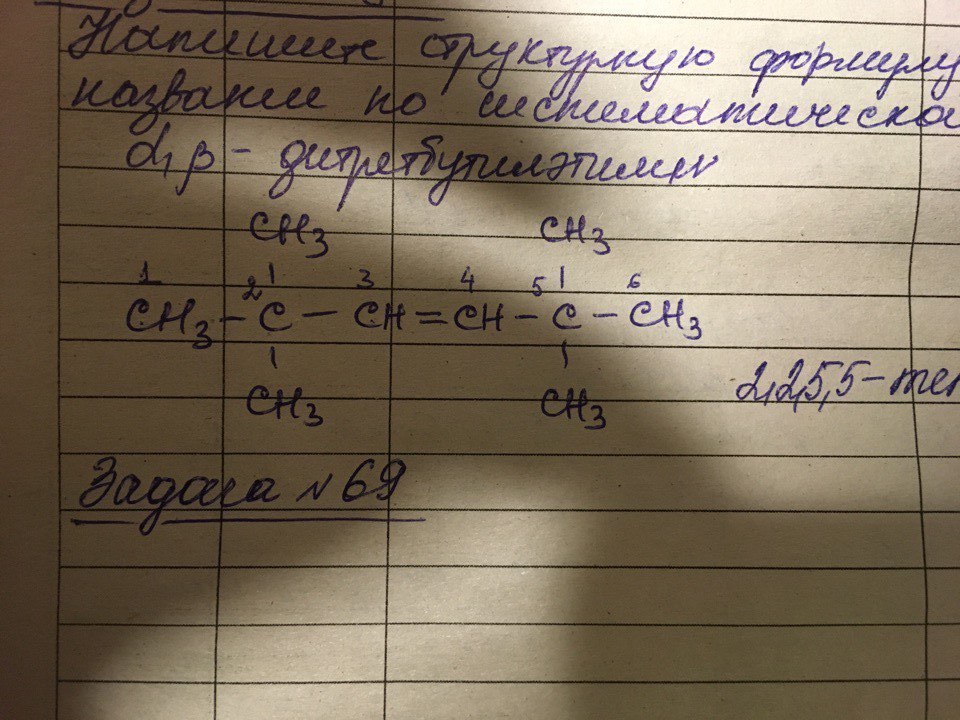 Напишите структурную формулу
название по систематическо
α, β - дитретбутилэтилен
CH3 CH3
1 2 3 4 5 6
CH3 - C - CH = CH - C - CH3
CH3 CH3
2,2,5,5 - тет
Задача №69